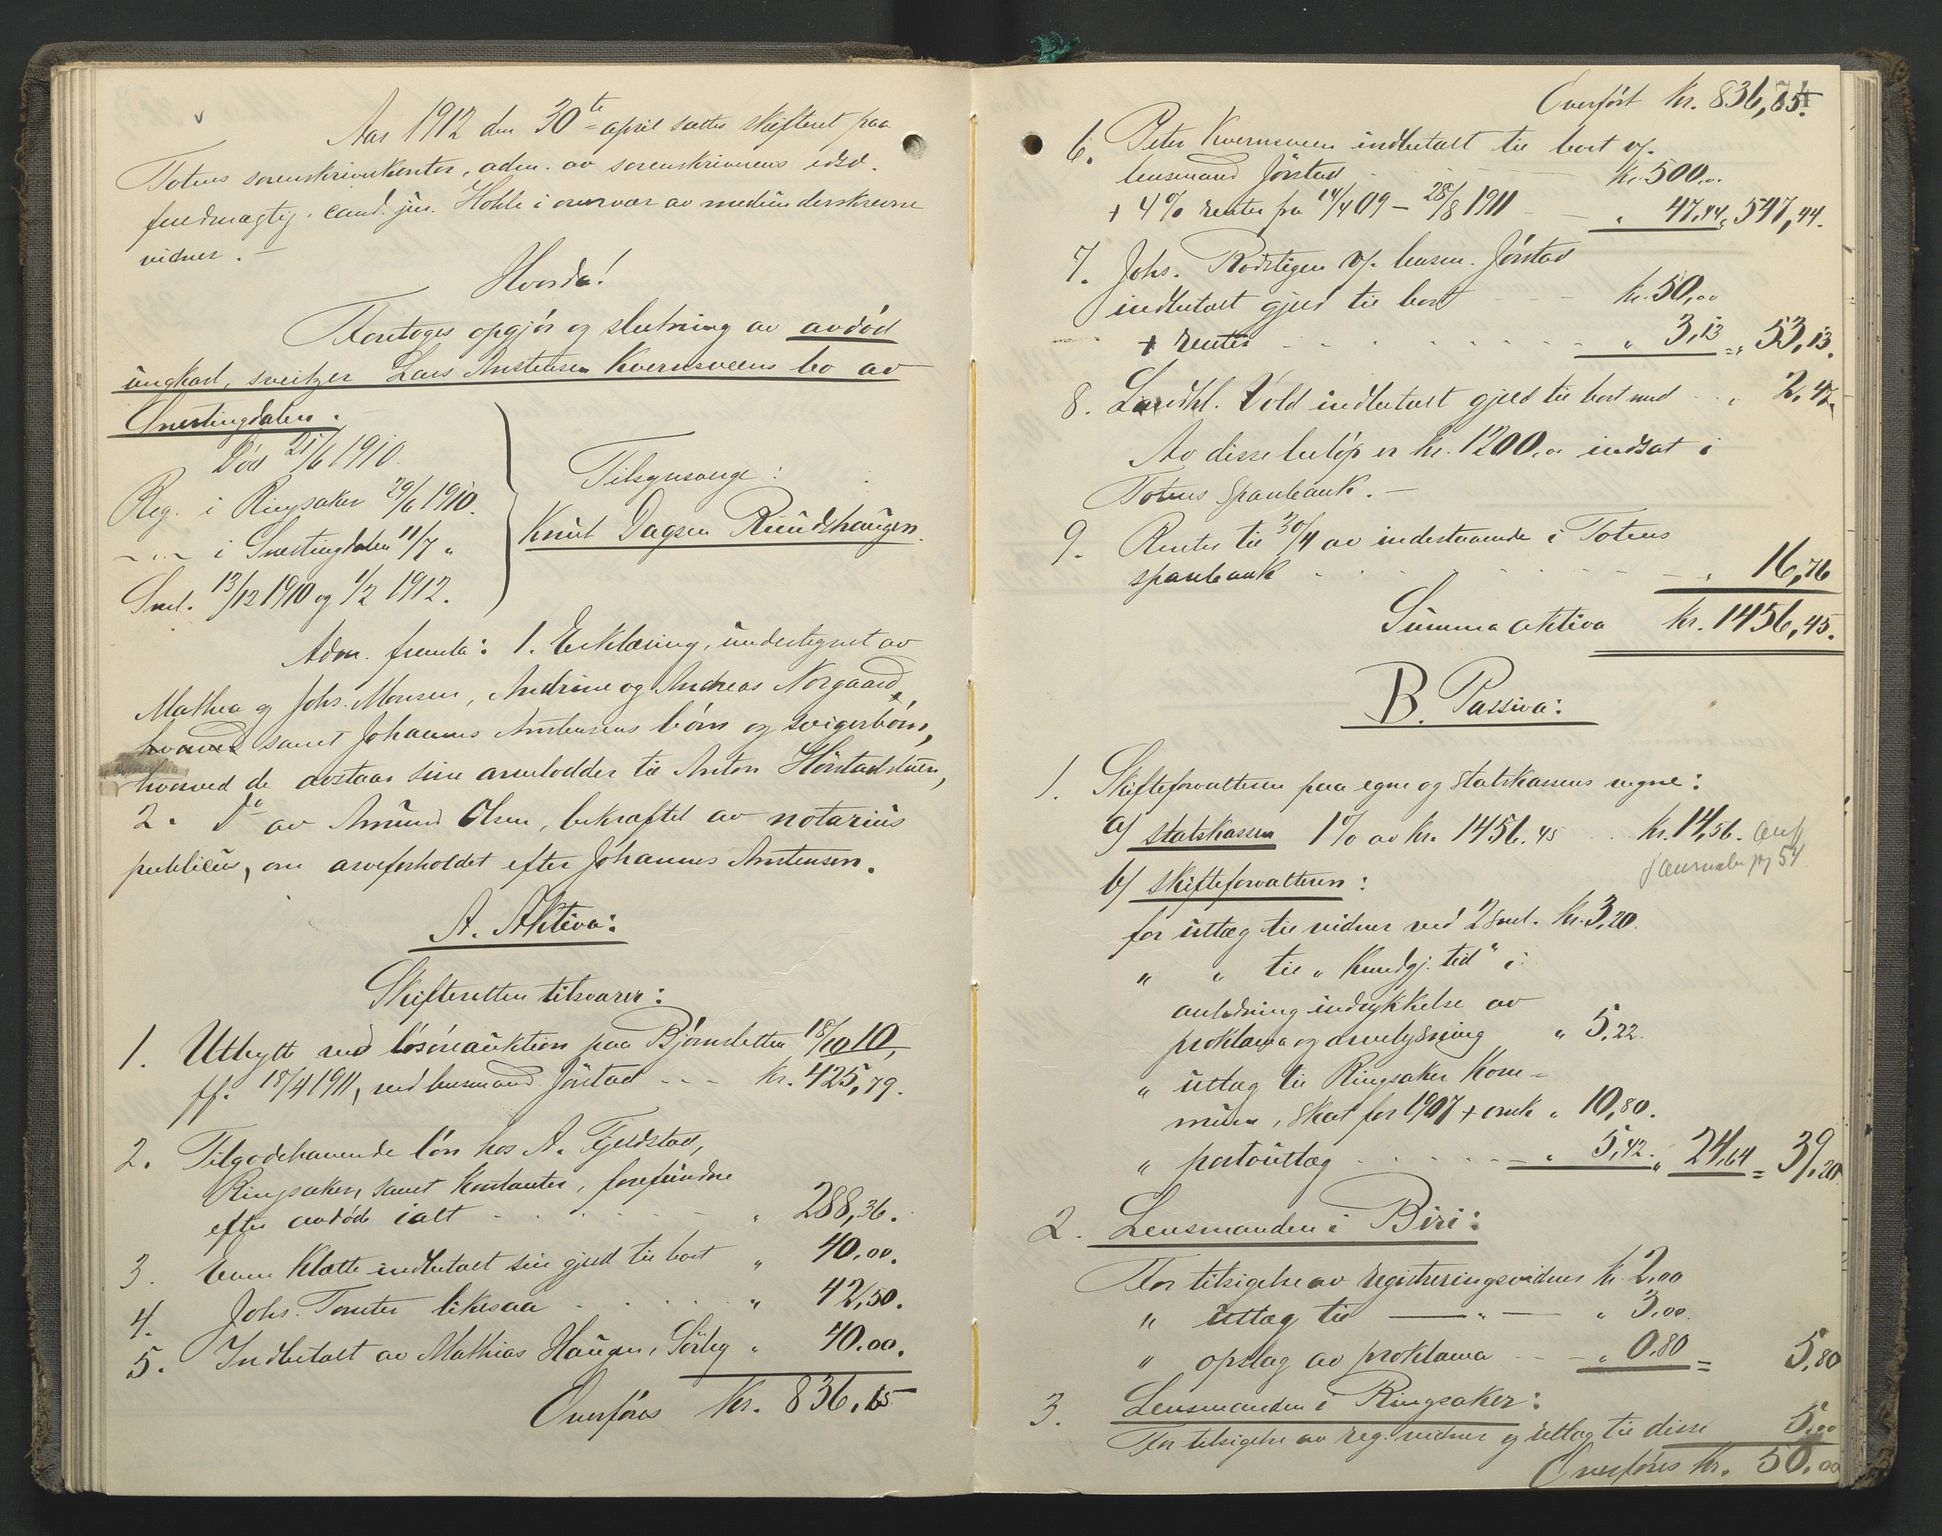 Aar 1912 den 30te april sattes skifteret paa
Totens sorenskriverkontor, adm. av sorenskriverens edsv.
fuldmægtig, cand. jur. Hohle i overvær av medunderskrevne
vidner. –
Hvorda!
Foretoges opgjör og slutning av avdöd
ungkarl, sveitzer Lars Anstensen Kvernsveens bo av
Snertingdalen. –
Död 21/6 1910.
Reg. i Ringsaker 29/6 1910.
– " – i Snertingdalen 11/7 "
Saml. 13/12 1910 og 1/2 1912.
Tilsynsverge:
Knut Dagsen Rundhaugen.
Adm. fremla: 1. Erklæring, undertegnet av
Mathea og Johs. Monsen, Andrine og Andreas Norgaard,
samt Johannes Anstensens börn og svigerbörn,
hvorved de avstaar sine arvelodder til Anton Hörstadstuen,
2. Do av Amund Olsen, bekræftet av notarius
publicus, om arveforholdet efter Johannes Anstensen.
A. Aktiva:
Skifteretten tilsvarer:
1. Utbytte ved lösöreauktion paa Bjørnsletten 18/10 10,
ff. 18/4 1911, ved lensmand Jörstad - - - kr. 425,79.
2. Tilgodehavende lön hos A. Fjeldstad,
Ringsaker, samt kontanter, forefundne
efter avdöde ialt " 288,36.
3. Even Klætte indbetalt sin gjeld til boet " 40.00.
4. Johs. Tomter likesaa " 42,50.
5. Indbetalt av Mathias Haugen, Sörby " 40.00.
Overföres kr. 836.65
Overfört kr. 836,65.
6. Peter Kvernsveen indbetalt til boet v/
lensmand Jörstad kr. 500,00
+ 4 % renter fra 14/4 09 – 28/8 1911 " 47,44 " 547,44.
7. Johs. Rodstigen v/ lensm. Jörstad
indbetalt gjeld til boet kr. 50,00
+ renter " 3,13 = " 53,13.
8. Landhl. Vold indbetalt gjeld til boet med " 2,47
Av disse belöp er kr. 1200,00 indsat i
Totens sparebank. –
9. Renter til 30/4 av indestaaende i Totens
sparebank " 16,76
Summa aktiva kr. 1456,45.
B. Passiva:
1. Skifteforvalteren paa egne og statskassens vegne:
a) statskassen 1 % av kr. 1456.45 kr. 14,56.
journalen pg 54
b) skifteforvalteren:
for utlæg til vidner ved 2 saml. kr. 3,20.
" " til "Kundgj. tid" i
anledning indrykkelse av
proklama og arvelysning " 5,22.
" utlæg til Ringsaker Kom-
mune, skat for 1907 + omk " 10,80.
" portoutlæg " 5,42. " 24,64 = 39,20
2. Lensmanden i Biri:
For tilsigelse av registreringsvidner kr. 2,00
" utlæg til — " — " 3,00.
" opslag av proklama " 0,80 = 5,80
3. Lensmanden i Ringsaker:
For tilsigelse av reg. vidner og utlæg til disse 5,00
Overföres kr. 50.00